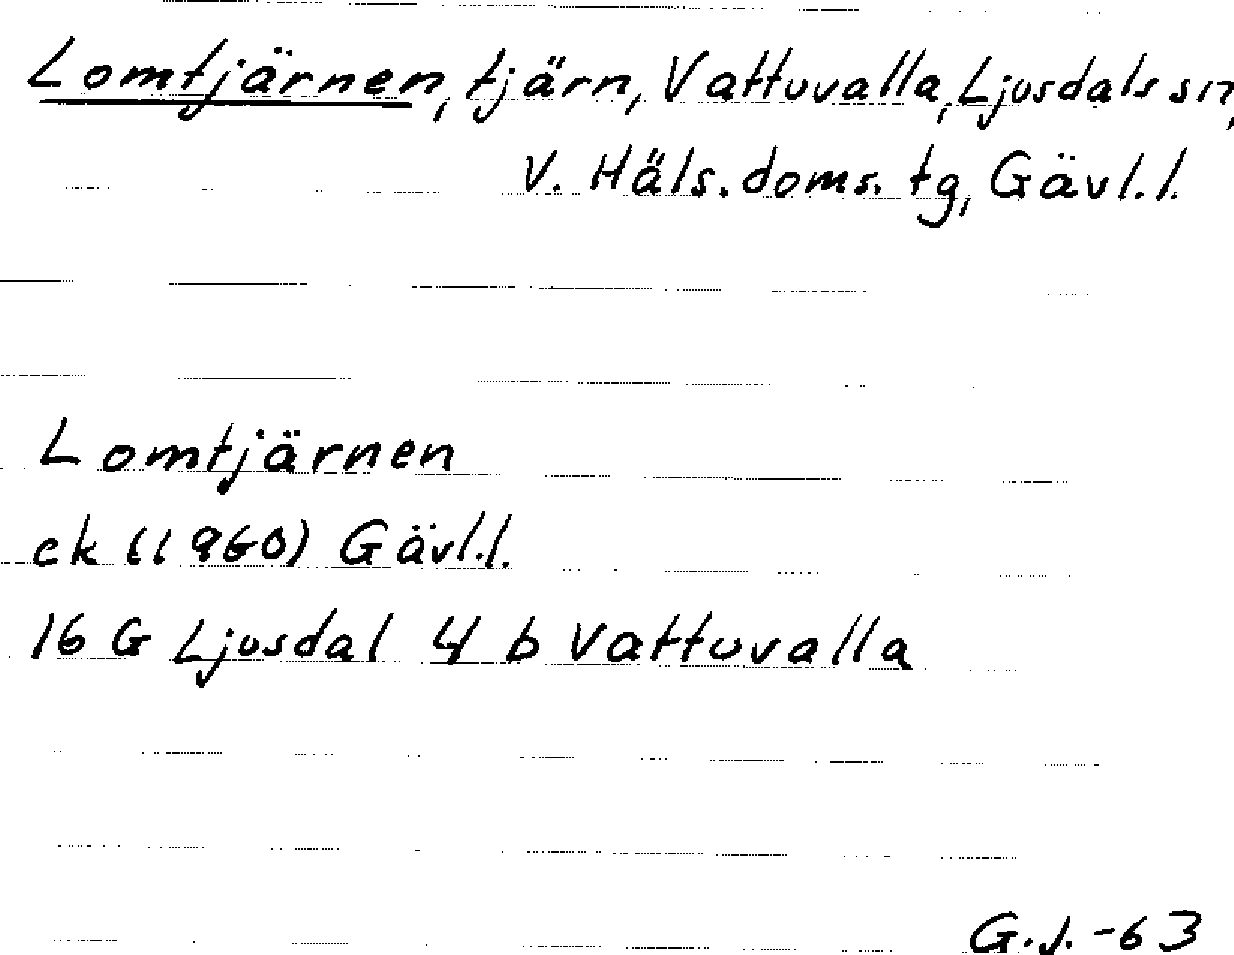 Lomtjärnen, tjärn, Vattuvalla, Ljusdals sn,
V. Häls. doms. tg, Gävl.l.
Lomtjärnen
ek (1960) Gävl.l.
16 G Ljusdal 4 b Vattuvalla
G.J. -63